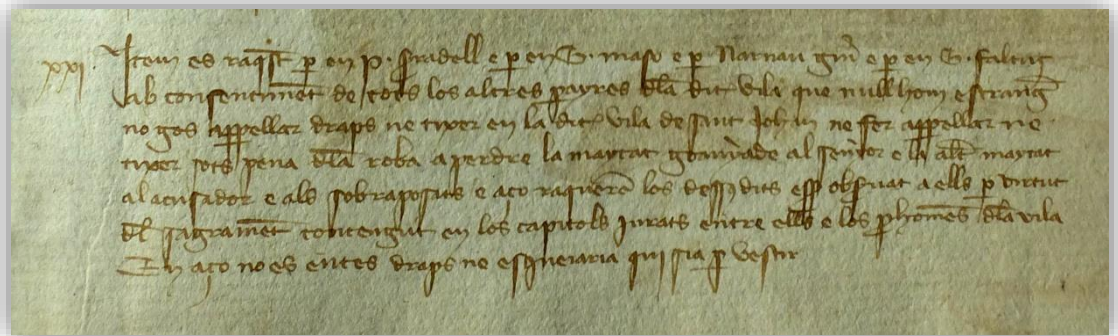 xxi. Item es raqst p en P. Pradell e p en G. maso e p Narnau gm e p en G. faltug
ab consentimēt de tots los altres payres dla dit vila que null hom estrang
no gos appellar draps ne tixer en la dit vila de sant Johan ne fer appellar ne
tixer sots pena dla roba a perdre la maytat al senyor e la alt maytat
al acusador e als sobraposats e aço raquerē los dessus dits ess obseruat a ells p virtut
dl sagramēt contengut en los capitols jurats entre ells e los phomēs dla vila
En aço no es entes draps ne qui sia p vestir